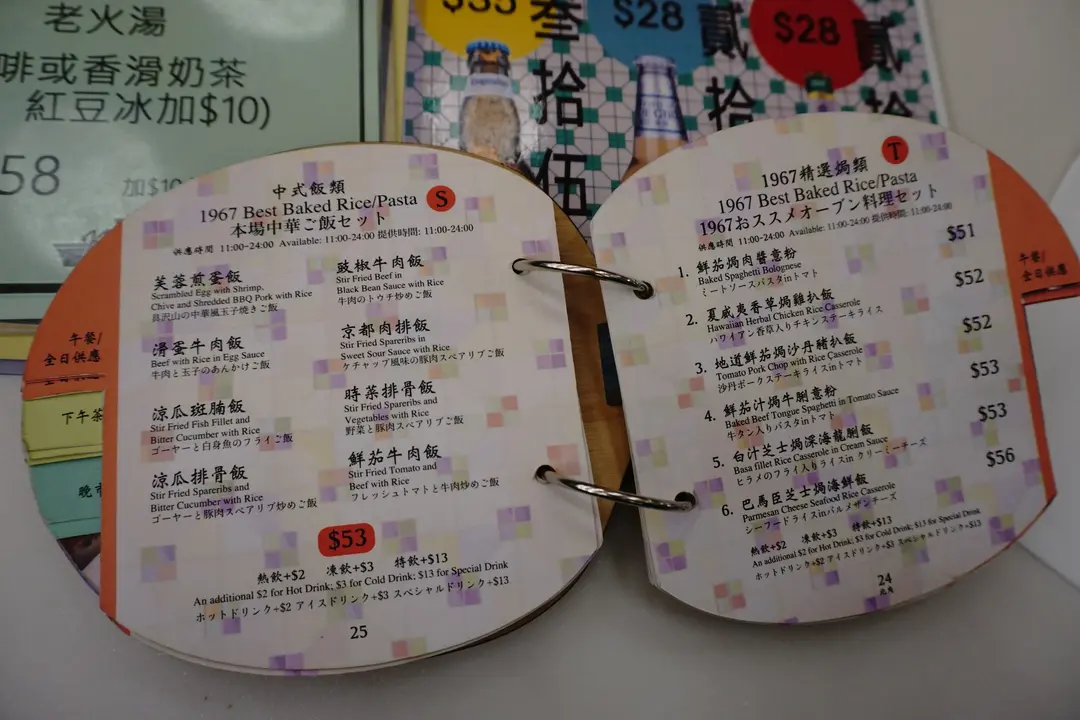 老火湯
啡或香滑奶茶
紅豆冰加$10)
58
加$10
$35
叁拾伍
$28
貳拾
$28
貳拾
中式飯類
1967 Best Baked Rice/Pasta
S
本場中華ご飯セット
供應時間 11:00-24:00 Available: 11:00-24:00 提供時間: 11:00-24:00
芙蓉煎蛋飯
Scrambled Egg with Shrimp,
Chive and Shredded BBQ Pork with Rice
具沢山の中華風玉子焼きご飯
滑蛋牛肉飯
Beef with Rice in Egg Sauce
牛肉と玉子のあんかけご飯
涼瓜斑腩飯
Stir Fried Fish Fillet and
Bitter Cucumber with Rice
ゴーヤーと白身魚のフライご飯
涼瓜排骨飯
Stir Fried Spareribs and
Bitter Cucumber with Rice
ゴーヤーと豚肉スペアリブ炒めご飯
豉椒牛肉飯
Stir Fried Beef in
Black Bean Sauce with Rice
牛肉のトウチ炒めご飯
京都肉排飯
Stir Fried Spareribs in
Sweet Sour Sauce with Rice
ケチャップ風味の豚肉スペアリブご飯
時菜排骨飯
Stir Fried Spareribs and
Vegetables with Rice
野菜と豚肉スペアリブご飯
鮮茄牛肉飯
Stir Fried Tomato and
Beef with Rice
フレッシュトマトと牛肉炒めご飯
$53
熱飲+$2 凍飲+$3 特飲+$13
An additional $2 for Hot Drink; $3 for Cold Drink; $13 for Special Drink
ホットドリンク+$2 アイスドリンク+$3 スペシャルドリンク+$13
25
午餐/
全日供應
全日供應
下午茶
晚市
1967精選焗類
T
1967 Best Baked Rice/Pasta
1967おススメオーブン料理セット
供應時間 11:00-24:00 Available: 11:00-24:00 提供時間: 11:00-24:00
1. 鮮茄焗肉醬意粉 $51
Baked Spaghetti Bolognese
ミートソースパスタinトマト
2. 夏威夷香草焗雞扒飯 $52
Hawaiian Herbal Chicken Rice Casserole
ハワイアン香草入りチキンステーキライス
3. 地道鮮茄焗沙丹豬扒飯 $52
Tomato Pork Chop with Rice Casserole
沙丹ポークステーキライスinトマト
4. 鮮茄汁焗牛脷意粉 $53
Baked Beef Tongue Spaghetti in Tomato Sauce
牛タン入りパスタinトマト
5. 白汁芝士焗深海龍脷飯 $53
Basa fillet Rice Casserole in Cream Sauce
ヒラメのフライ入りライスin クリーミーチーズ
6. 巴馬臣芝士焗海鮮飯 $56
Parmesan Cheese Seafood Rice Casserole
シーフードライスinパルメザンチーズ
熱飲+$2 凍飲+$3 特飲+$13
An additional $2 for Hot Drink; $3 for Cold Drink; $13 for Special Drink
ホットドリンク+$2 アイスドリンク+$3 スペシャルドリンク+$13
24
北角
午餐/
全日供應